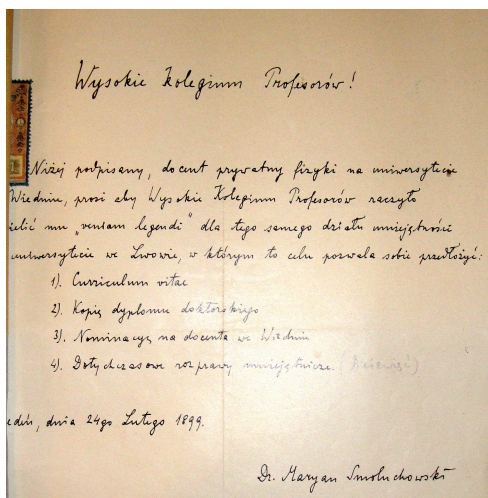 Wysokie Kolegium Profesorów!
Niżej podpisany, docent prywatny fizyki na uniwersytecie
Wiedniu, prosi aby Wysokie Kolegium Profesorów raczyło
ielić mu „veniam legendi" dla tego samego działu umiejętności
uniwersytecie we Lwowie, w którym to celu pozwala sobie przedłożyć:
1). Curriculum vitae
2). Kopię dyplomu doktorskiego
3). Nominacyę na docenta we Wiedniu
4). Dotychczasowe rozprawy umiejętnicze.
edeń, dnia 24go Lutego 1899.
Dr. Maryan Smoluchowski